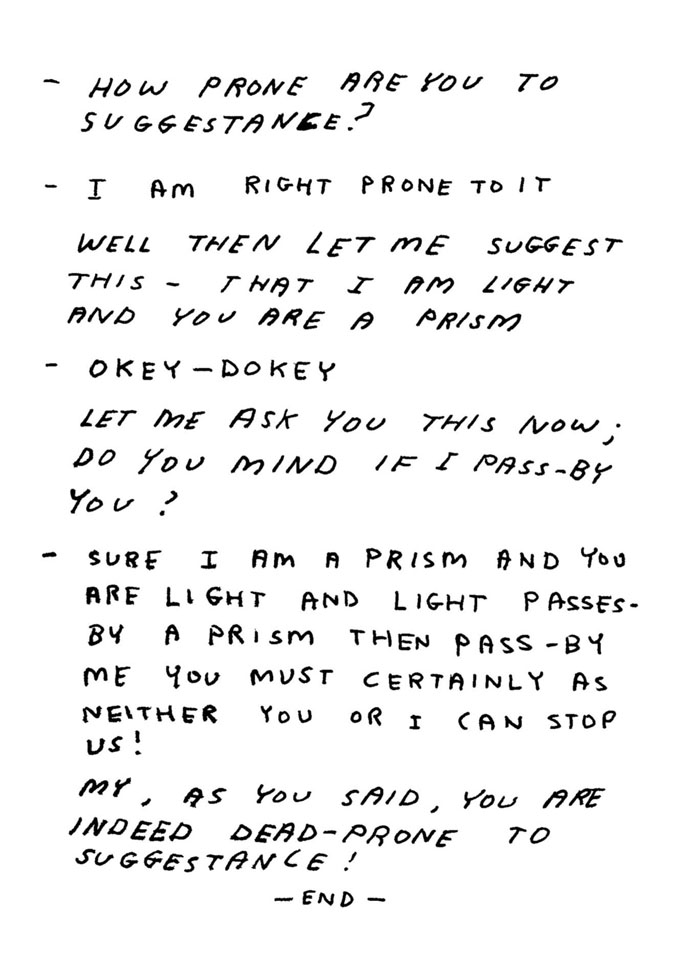 - HOW PRONE ARE YOU TO
SUGGESTANCE?
- I AM RIGHT PRONE TO IT
WELL THEN LET ME SUGGEST
THIS - THAT I AM LIGHT
AND YOU ARE A PRISM
- OKEY-DOKEY
LET ME ASK YOU THIS NOW;
DO YOU MIND IF I PASS-BY
YOU?
- SURE I AM A PRISM AND YOU
ARE LIGHT AND LIGHT PASSES-
BY A PRISM THEN PASS-BY
ME YOU MUST CERTAINLY AS
NEITHER YOU OR I CAN STOP
US!
MY, AS YOU SAID, YOU ARE
INDEED DEAD-PRONE TO
SUGGESTANCE!
-END-